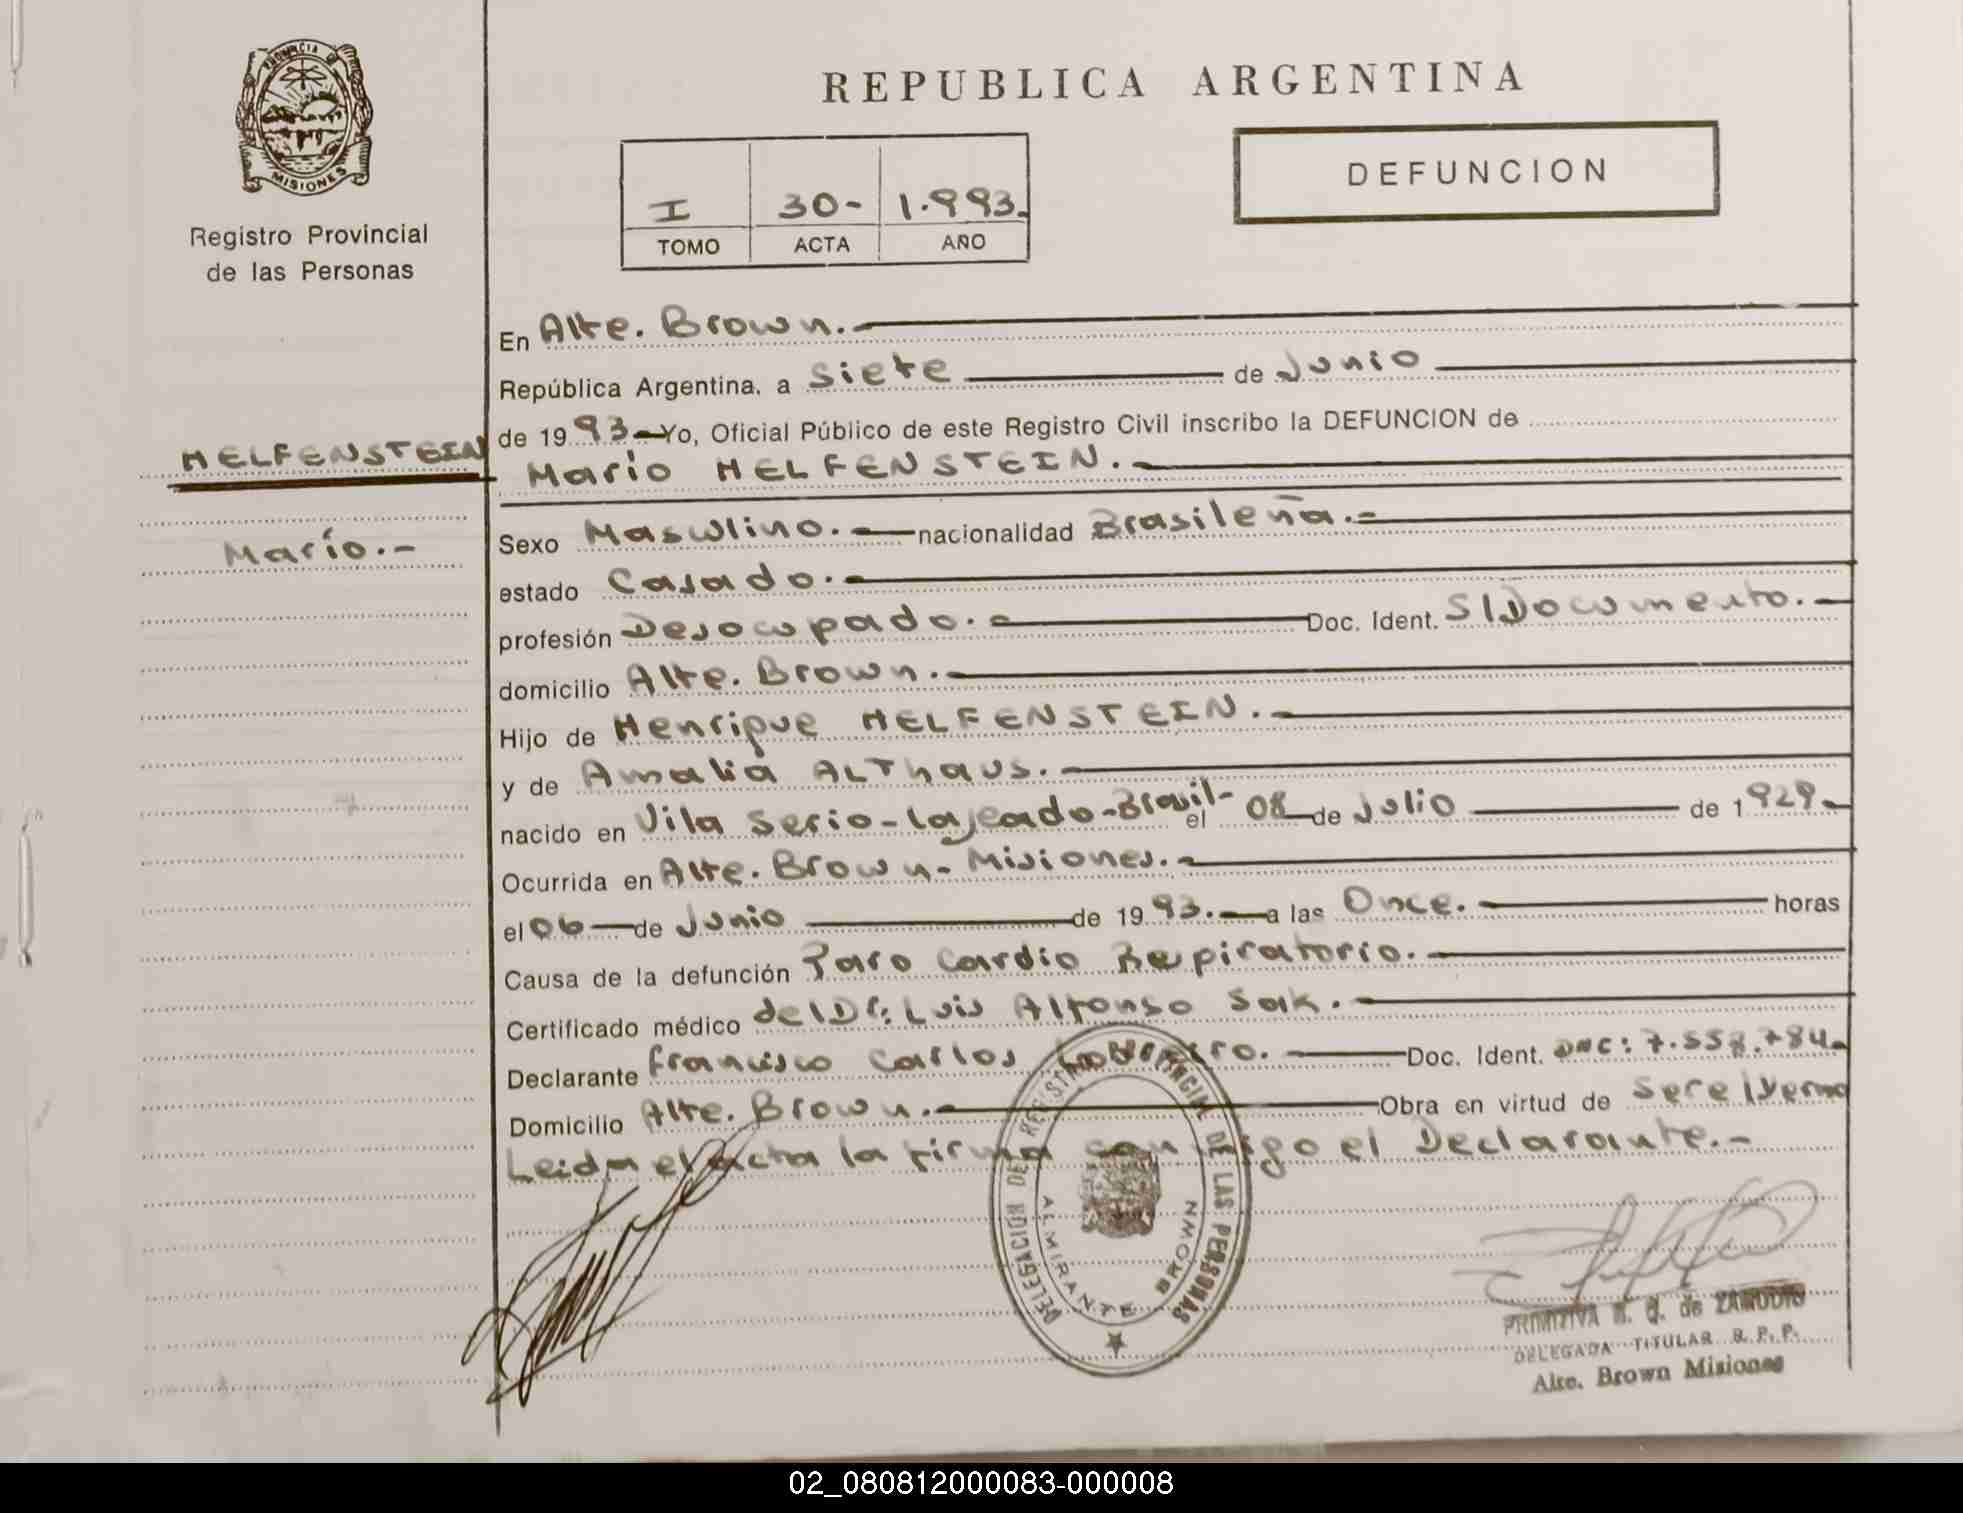 PROVINCIA DE
MISIONES
Registro Provincial
de las Personas
REPUBLICA ARGENTINA
DEFUNCION
I 30- 1.993.
TOMO ACTA AÑO
En Alte. Brown.-
República Argentina, a siete de Junio
de 1993 Yo, Oficial Público de este Registro Civil inscribo la DEFUNCION de
HELFENSTEIN
Mario HELFENSTEIN.-
Mario.-
Sexo Masculino.- nacionalidad Brasileña.-
estado Casado.-
profesión Desocupado.- Doc. Ident. S/Documento.-
domicilio Alte. Brown.-
Hijo de Henrique HELFENSTEIN.-
y de Amalia ALThaus.-
nacido en Vila Serio-Lajeado-Brasil- el 08 de Julio de 1929-
Ocurrida en Alte. Brown- Misiones.-
el 06 de Junio de 1993.- a las Once.- horas
Causa de la defunción Paro Cardio Respiratorio.-
Certificado médico del Dr. Luis Alfonso Sak.-
Declarante Francisco Carlos Doc. Ident. DNC: 7.558.784-
Domicilio Alte. Brown.- Obra en virtud de ser el Yerno
Leida el acta la firma conmigo el Declarante.-
DELEGACION DEL REGISTRO PROVINCIAL DE LAS PERSONAS
ALMIRANTE BROWN
PRIMITIVA B. Q. de ZAMUDIO
DELEGADA TITULAR R. P. P.
Alte. Brown Misiones
02_080812000083-000008